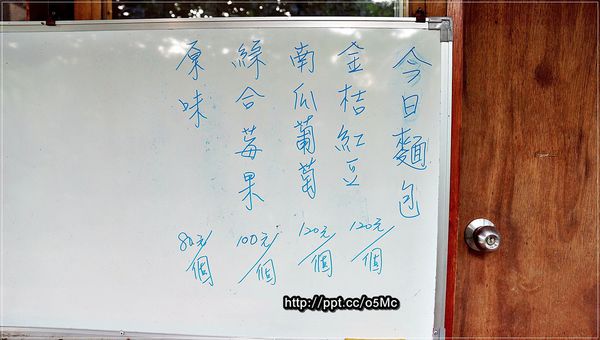 今日麵包
金桔紅豆 120元/個
南瓜葡萄 120元/個
綜合莓果 100元/個
原味 80元/個
http://ppt.cc/o5Mc